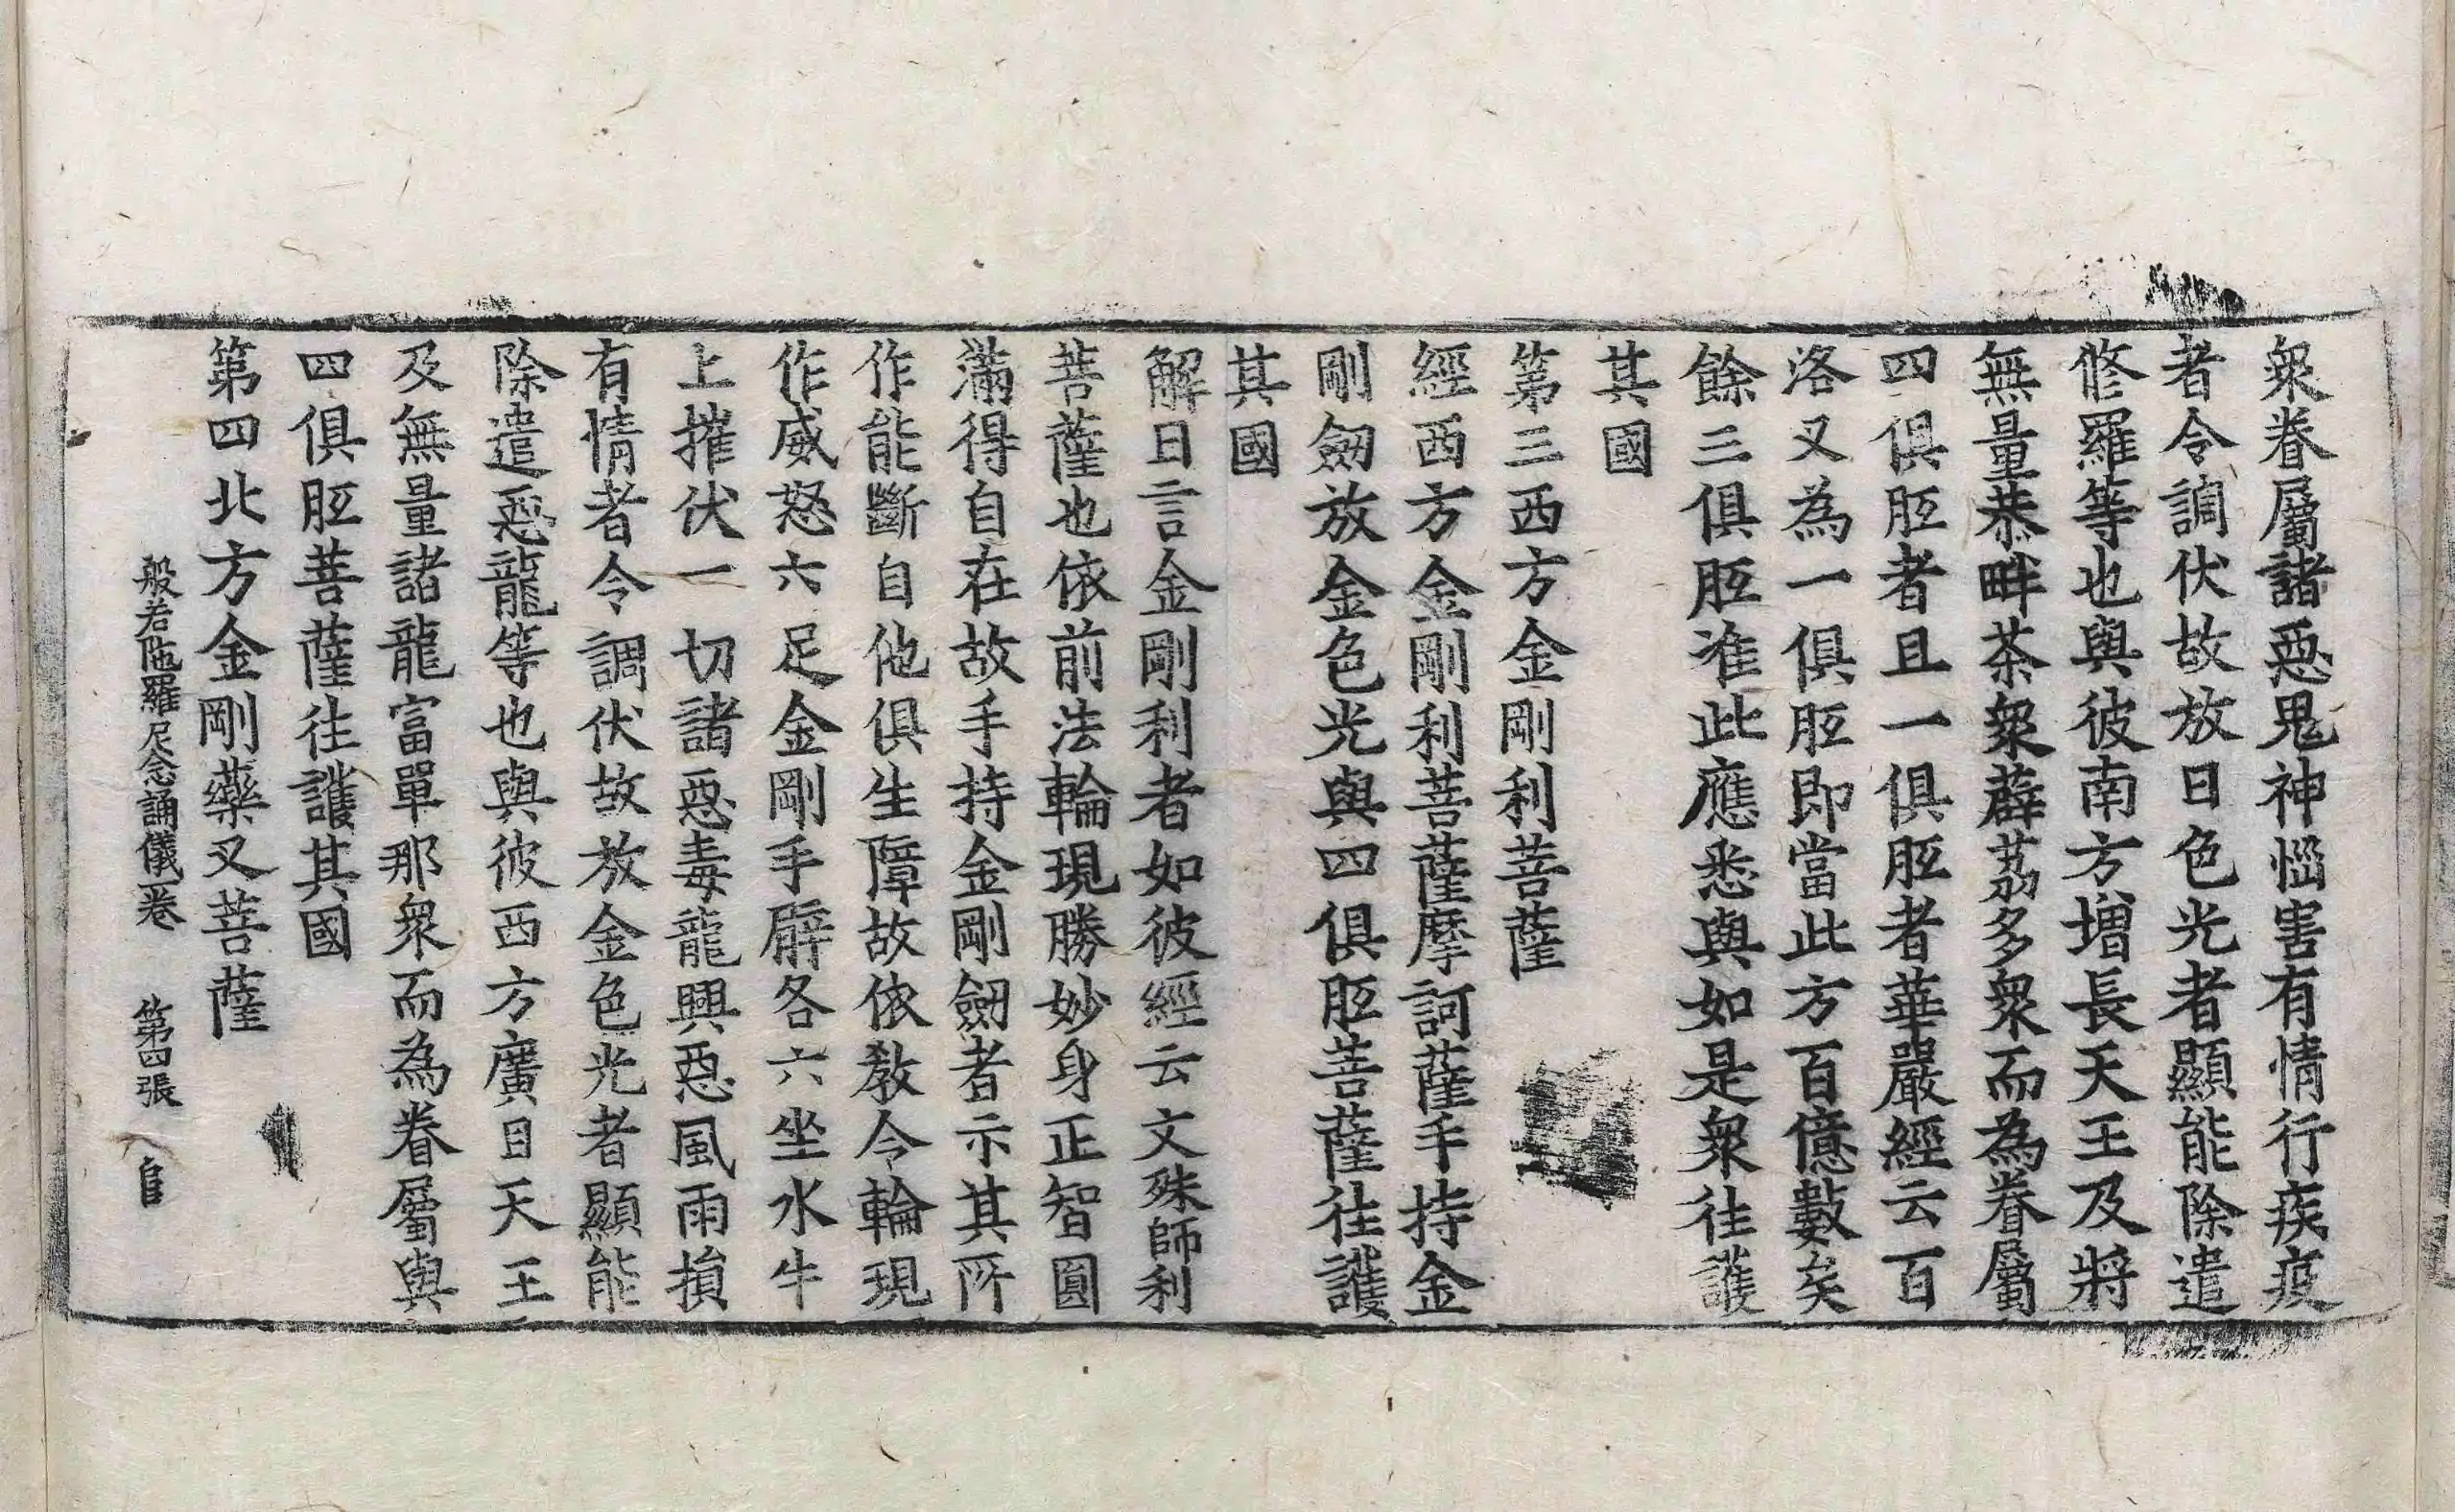 衆眷屬諸惡鬼神惱害有情行疾疫
者令調伏故放日色光者顯能除遣
修羅等也與彼南方增長天王及將
無量恭畔茶衆薜荔多衆而為眷屬
四俱胝者且一俱胝者華嚴經云百
洛叉為一俱胝即當此方百億數矣
餘三俱胝准此應悉與如是衆往護
其國
第三西方金剛利菩薩
經西方金剛利菩薩摩訶薩手持金
剛劒放金色光與四俱胝菩薩往護
其國
解曰言金剛利者如彼經云文殊師利
菩薩也依前法輪現勝妙身正智圓
滿得自在故手持金剛劒者示其所
作能斷自他俱生障故依教令輪現
作威怒六足金剛手臂各六坐水牛
上摧伏一切諸惡毒龍興惡風雨損
有情者令調伏故放金色光者顯能
除遣惡龍等也與彼西方廣目天王
及無量諸龍富單那衆而為眷屬與
四俱胝菩薩往護其國
第四北方金剛藥叉菩薩
般若陁羅尼念誦儀一卷 第四張 㠯